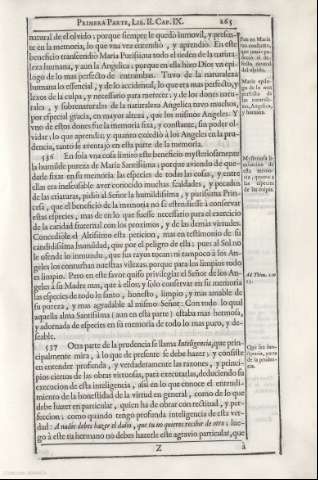 PRIMERA PARTE, LIB. II. CAP. IX. 265
natural de el olvido; porque siempre le quedò inmovil, y presen-
te en la memoria, lo que vna vez entendiò, y aprendiò. En este
beneficio trascendiò Maria Purissima todo el orden de la natura-
leza humana, y aun la Angelica; porque en ella hizo Dios vn epi-
logo de lo mas perfecto de entrambas. Tuvo de la naturaleza
humana lo essencial, y de lo accidental, lo que era mas perfecto, y
lexos de la culpa, y necessario para merecer; y de los dones natu-
rales, y sobrenaturales de la naturaleza Angelica tuvo muchos,
por especial gracia, en mayor alteza, que los mismos Angeles. Y
vno de estos dones fue la memoria fixa, y constante, sin poder ol-
vidar, lo que aprendia; y quanto excediò à los Angeles en la pru-
dencia, tanto se aventajò en esta parte de la memoria.
536 En sola vna cosa limitò este beneficio mysteriosamente
la humilde pureza de Maria Santissima; porque aviendo de que-
darse fixas en su memoria las especies de todas las cosas, y entre
ellas era inescusable aver conocido muchas fealdades, y pecados
de las criaturas, pidiò al Señor la humildissima, y purissima Prin-
cesa, que el beneficio de la memoria no se estendiesse à conservar
estas especies, mas de en lo que fuesse necessario para el exercicio
de la caridad fraternal con los proximos, y de las demàs virtudes.
Concediòle el Altissimo esta peticion, mas en testimonio de su
candidissima humildad, que por el peligro de ella; pues al Sol no
le ofende lo inmundo, que sus rayos tocan; ni tampoco à los An-
geles los conturban nuestras vilezas, porque para los limpios todo
es limpio. Pero en este favor quiso privilegiar el Señor de los An-
geles à su Madre mas, que à ellos; y solo conservar en su memoria
las especies de todo lo santo, honesto, limpio, y mas amable de
su pureza, y mas agradable al mismo Señor: Con todo lo qual
aquella alma Santissima (aun en esta parte) estaba mas hermosa,
y adornada de especies en su memoria de todo lo mas puro, y de-
seable.
537 Otra parte de la prudencia se llama Inteligencia, que prin-
cipalmente mira, à lo que de presente se debe hazer; y consiste
en entender profunda, y verdaderamente las razones, y princi-
pios ciertos de las obras virtuosas, para executarlas, deduciendo su
execucion de esta inteligencia, assi en lo que conoce el entendi-
miento de la honestidad de la virtud en general, como de lo que
debe hazer en particular, quien ha de obrar con rectitud, y per-
feccion: como quando tengo profunda inteligencia de esta ver-
dad: A nadie debes hazer el daño, que tu no quieres recibir de otro; lue-
go à este tu hermano no debes hazerle este agravio particular, que
Z à
Mysteriosa li-
Ad Titum. 1. v.
15.